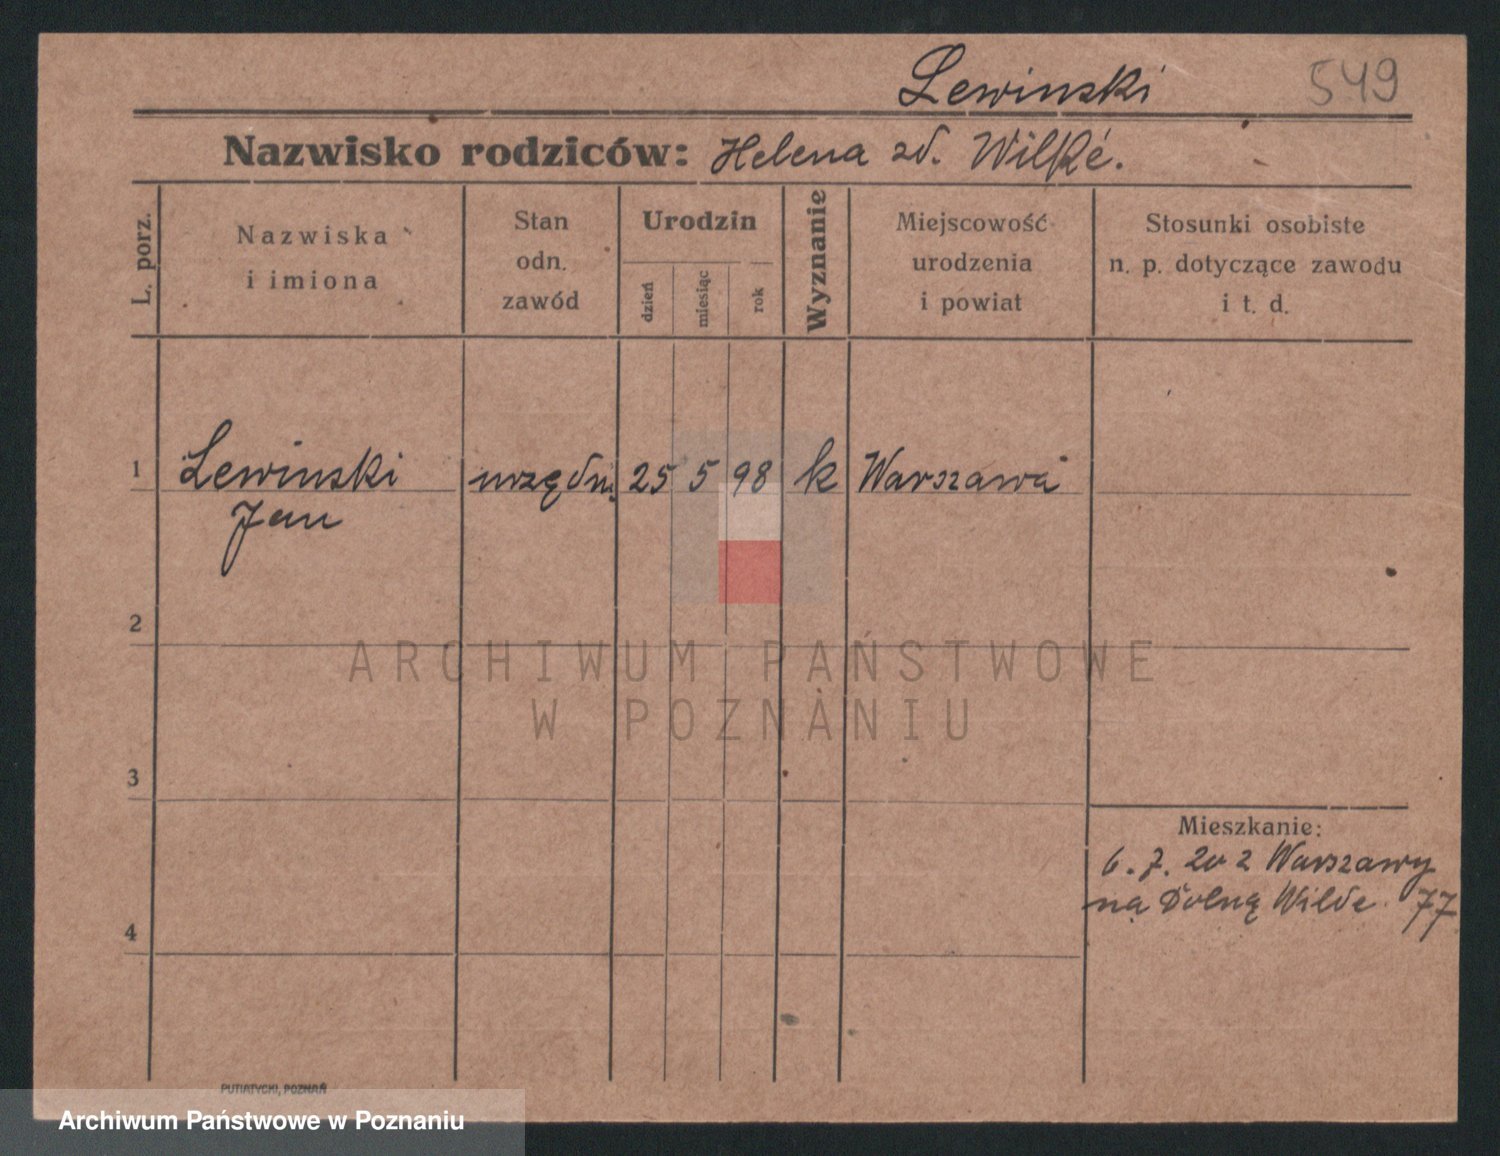 Lewinski 549
Nazwisko rodziców: Helena zd. Wilké.
L. porz.
Nazwiska
i imiona
Stan
odn.
zawód
Urodzin
dzień
miesiąc
rok
Wyznanie
Miejscowość
urodzenia
i powiat
Stosunki osobiste
n. p. dotyczące zawodu
i t. d.
1 Lewinski urzędn. 25 5 98 k Warszawa
Jan
2
ARCHIWUM PAŃSTWOWE
W POZNANIU
3
Mieszkanie:
6. 7. 20 z Warszawy
na Dolną Wilde 77
4
PUTIATYCKI, POZNAŃ
Archiwum Państwowe w Poznaniu